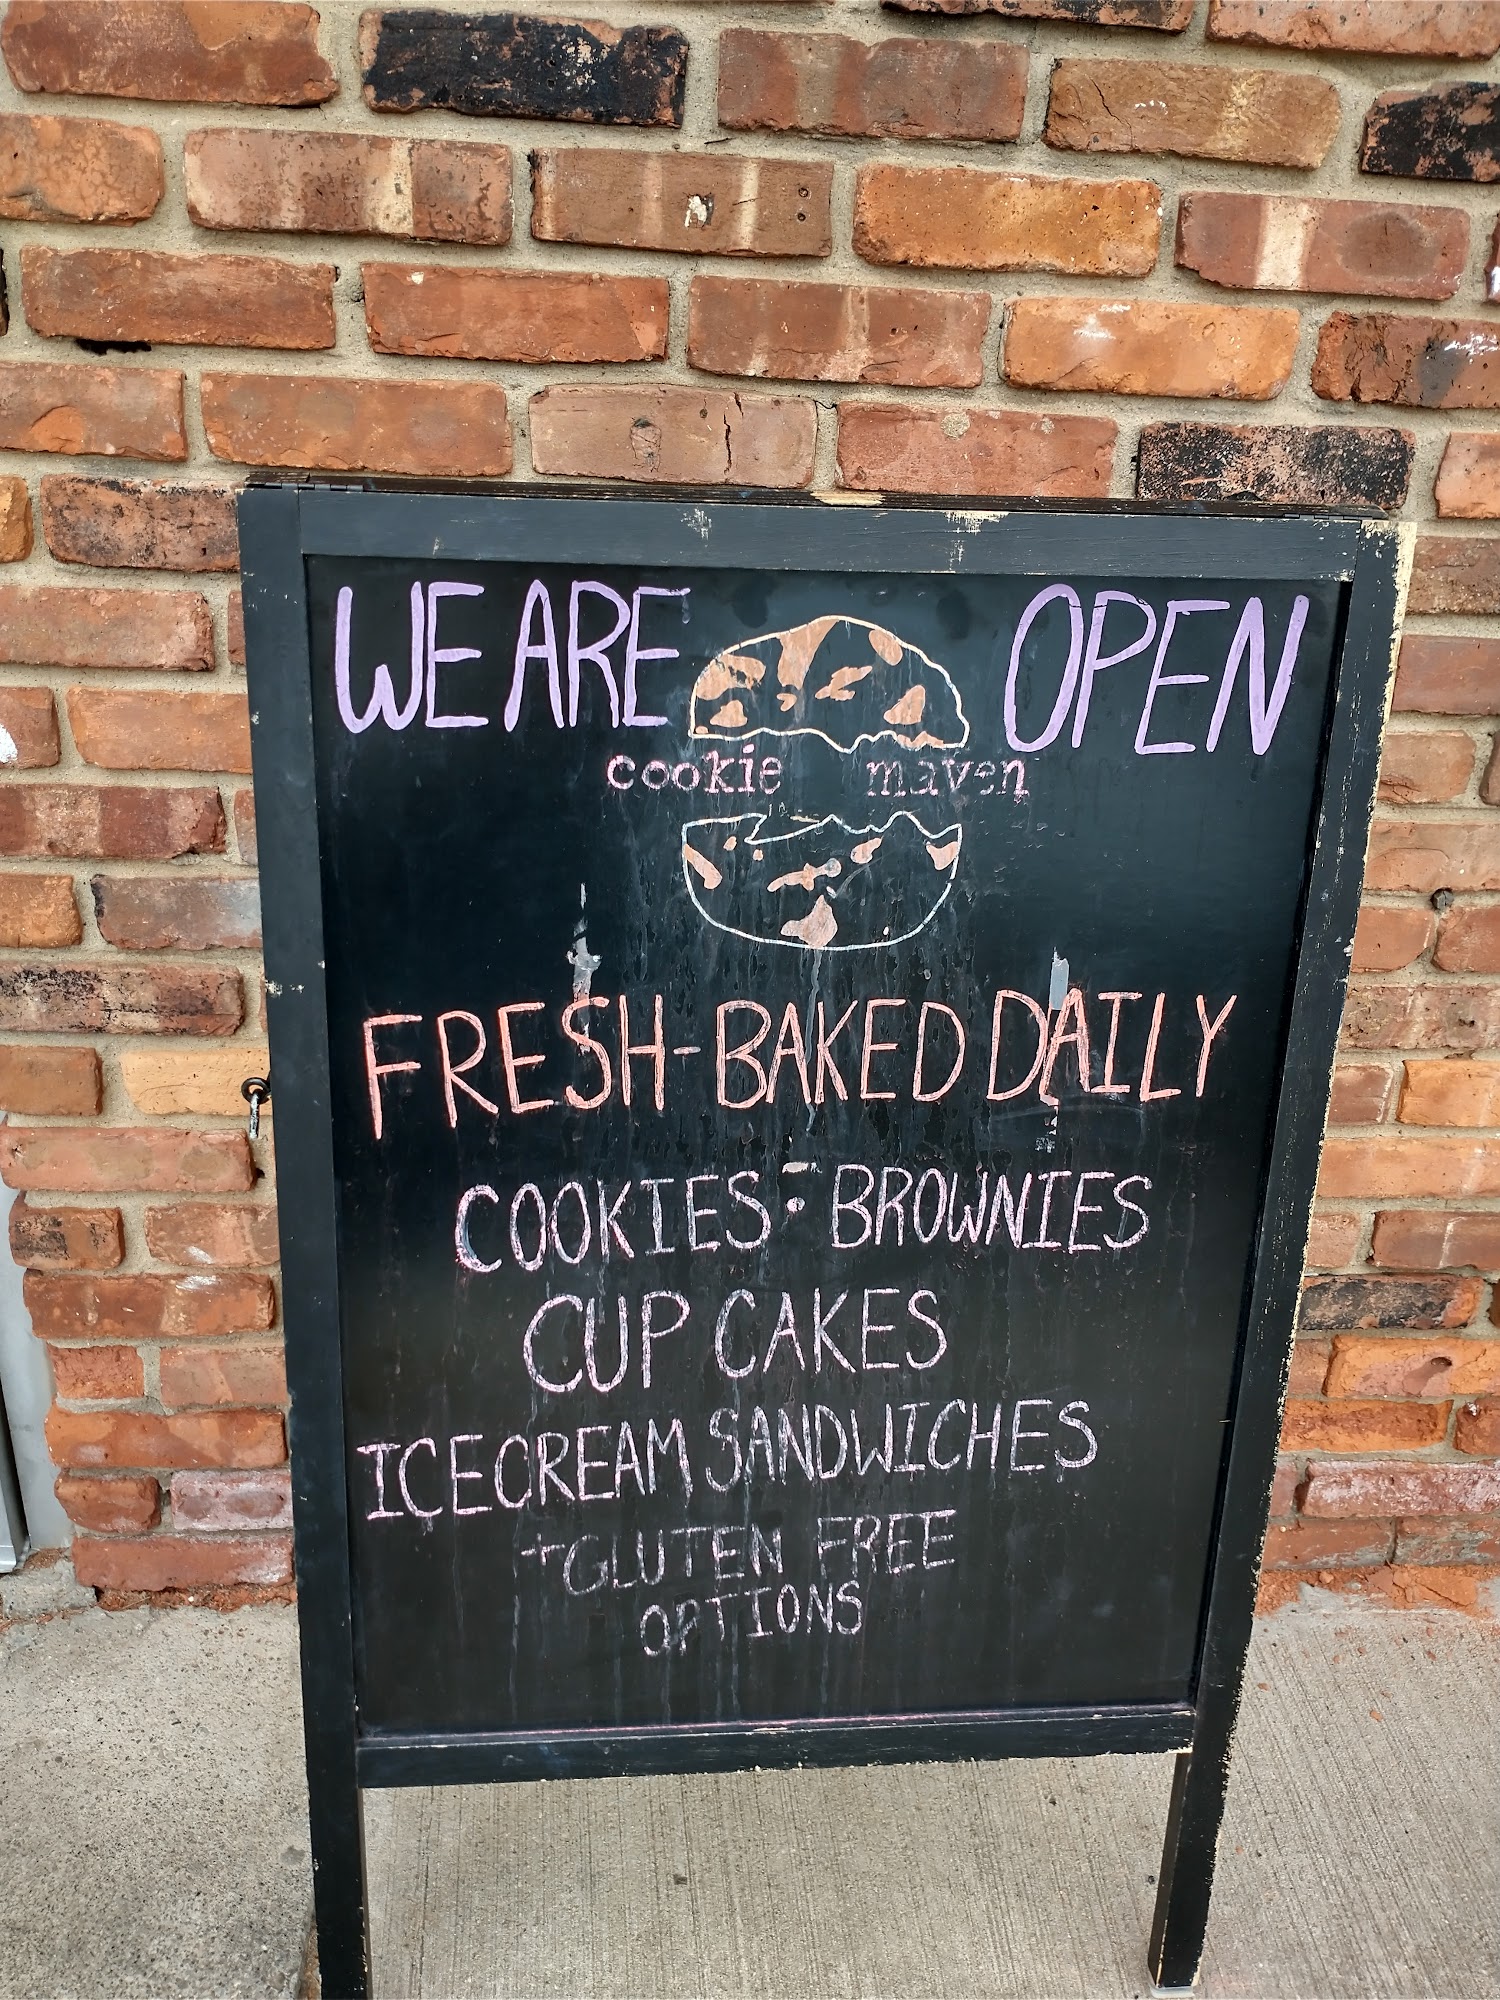 WE ARE OPEN
cookie maven
FRESH-BAKED DAILY
COOKIES • BROWNIES
CUP CAKES
ICE CREAM SANDWICHES
+GLUTEN FREE
OPTIONS